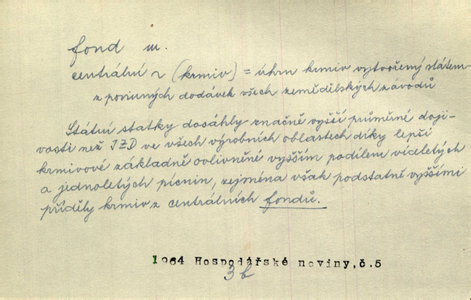 fond m.
centrální ~ (krmiv) = úhrn krmiv vytvořený státem
z povinných dodávek všech zemědělských závodů
Státní statky dosáhly značně vyšší průměrné doji-
vosti než JZD ve všech výrobních oblastech díky lepší
krmivové základně ovlivněné vyšším podílem víceletých
a jednoletých pícnin, zejména však podstatně vyššími
příděly krmiv z centrálních fondů.
1964 Hospodářské noviny, č.5
3b